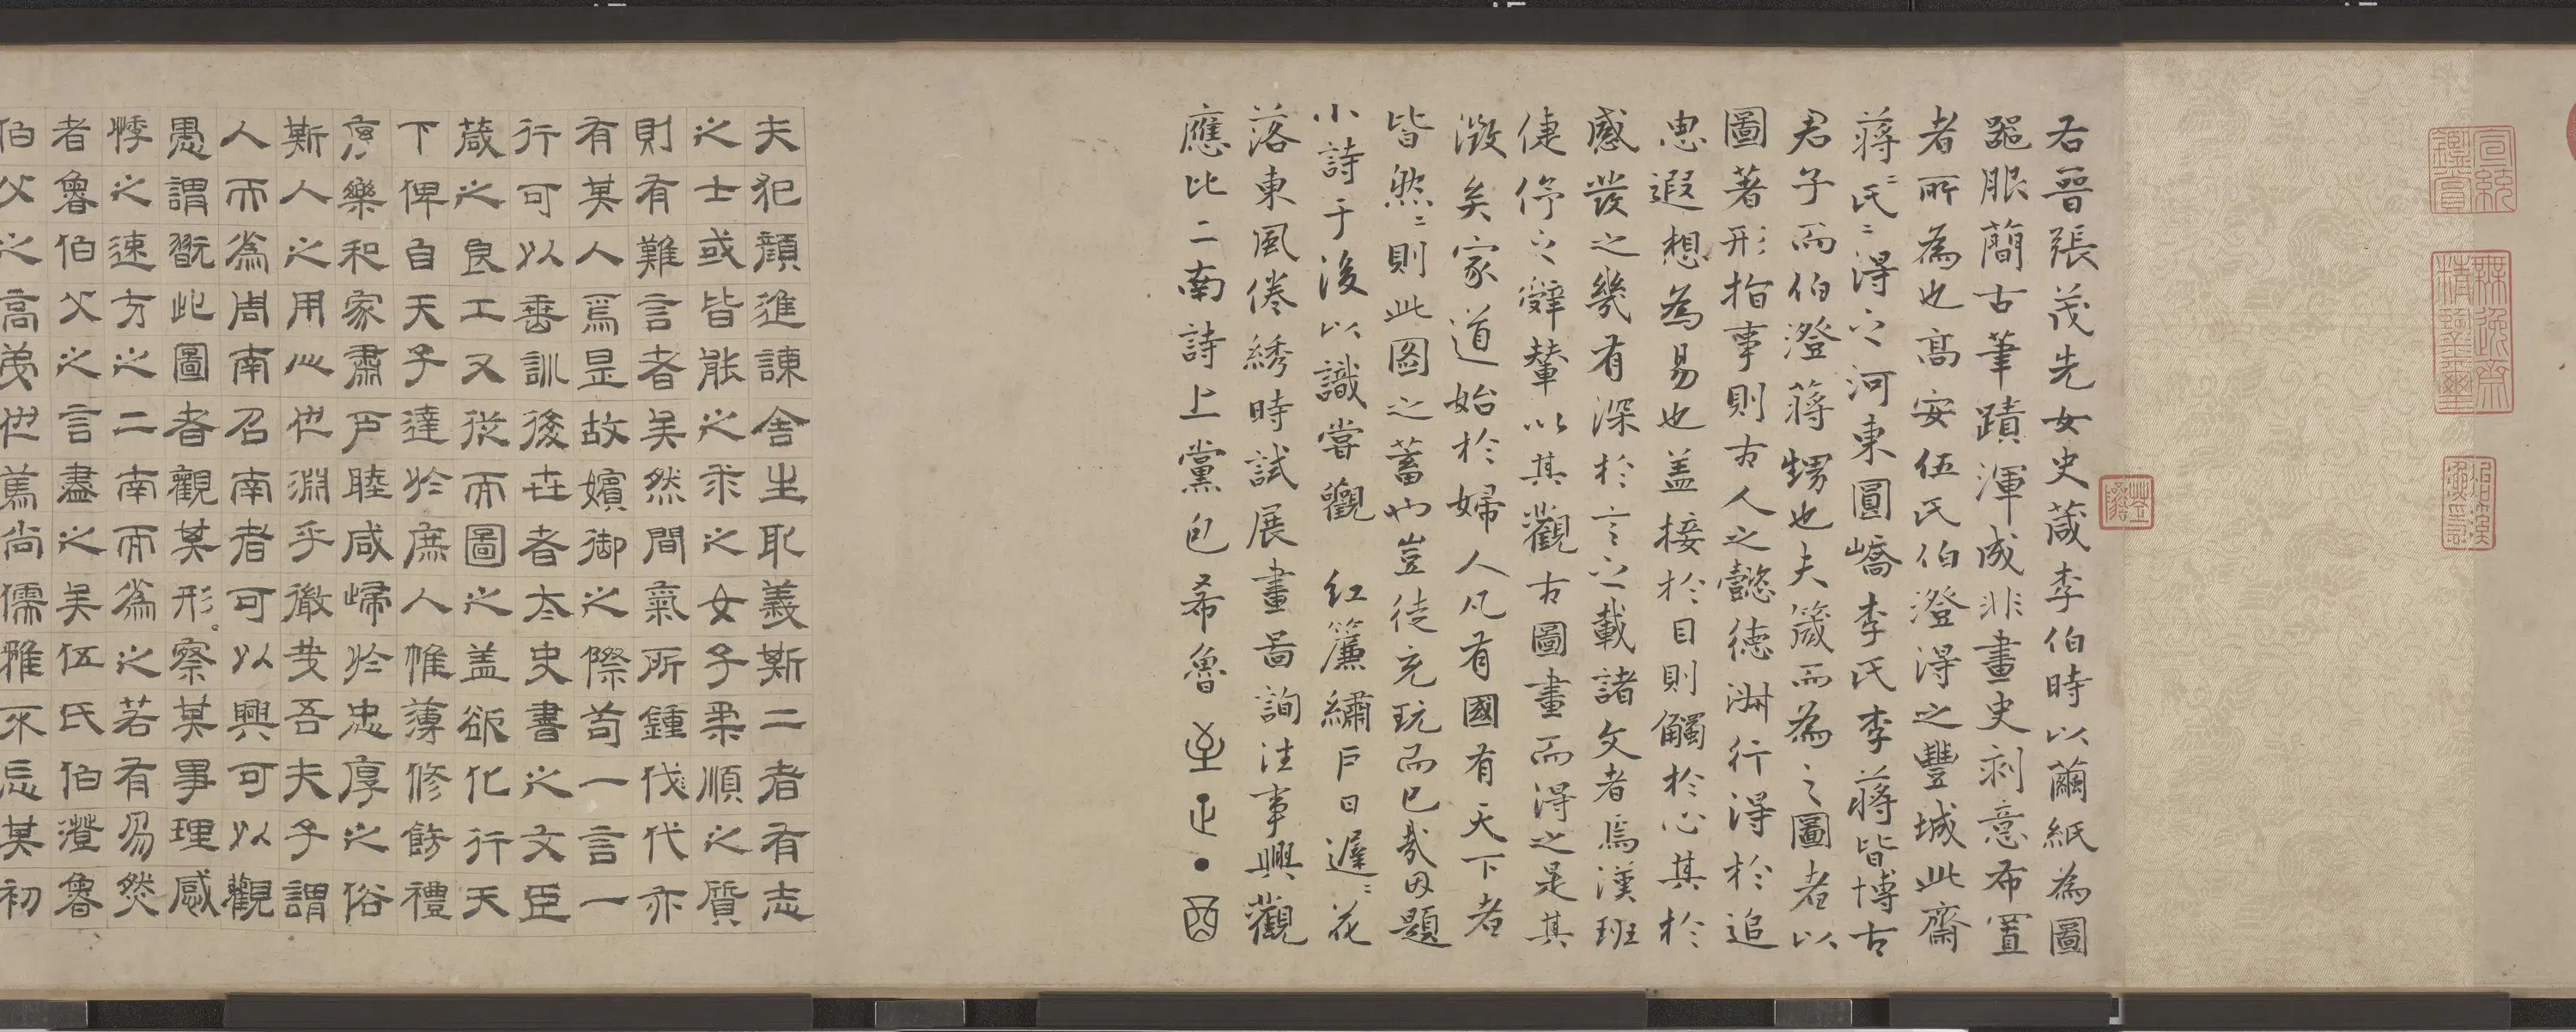 宣統鑒賞
無逸齋精鑒璽
右晉張茂先女史葴李伯時以繭紙為圖
器服簡古筆蹟渾成非畫史刻意布置
者所為也高安伍氏伯澄得之豐城此齋
蔣〻氏〻得之河東圓嶠李氏李蔣皆博古
君子而伯澄蔣甥也夫箴而為之圖者以
圖著形指事則古人之懿德淋行得於追
思遐想為易也盖接於目則觸於心其於
感發之幾有深於言之載諸文者焉漢班
倢伃之辭輦以其觀古圖畫而得之是其
徵矣家道始於婦人凡有國有天下者
皆然〻則此圖之蓄也豈徒充玩而已哉因題
小詩于後以識嘗觀 紅簾繡戶日遲〻花
落東風倦綉時試展畫啚詢往事興觀
應比二南詩上黨包希魯至正酉
夫犯顏進諫舍生取義斯二者有志
之士或皆能之求之女子柔順之質
則有難言者矣然間氣所鍾伐代亦
有其人焉是故嬪御之際苟一言一
行可以垂訓後世者太史書之文臣
葴之良工又從而圖之盖欲化行天
下俾自天子達於庶人帷薄修飭禮
度樂和家肅戶睦咸歸於忠厚之俗
斯人之用心也淵乎徹哉吾夫子謂
人而為周南召南者可以興可以觀
愚謂翫此圖者觀其形察其事理感
悸之速方之二南而為之若有易然
者魯伯父之言盡之矣伍氏伯澄魯
伯父之高弟也篤尚儒雅不忘其初